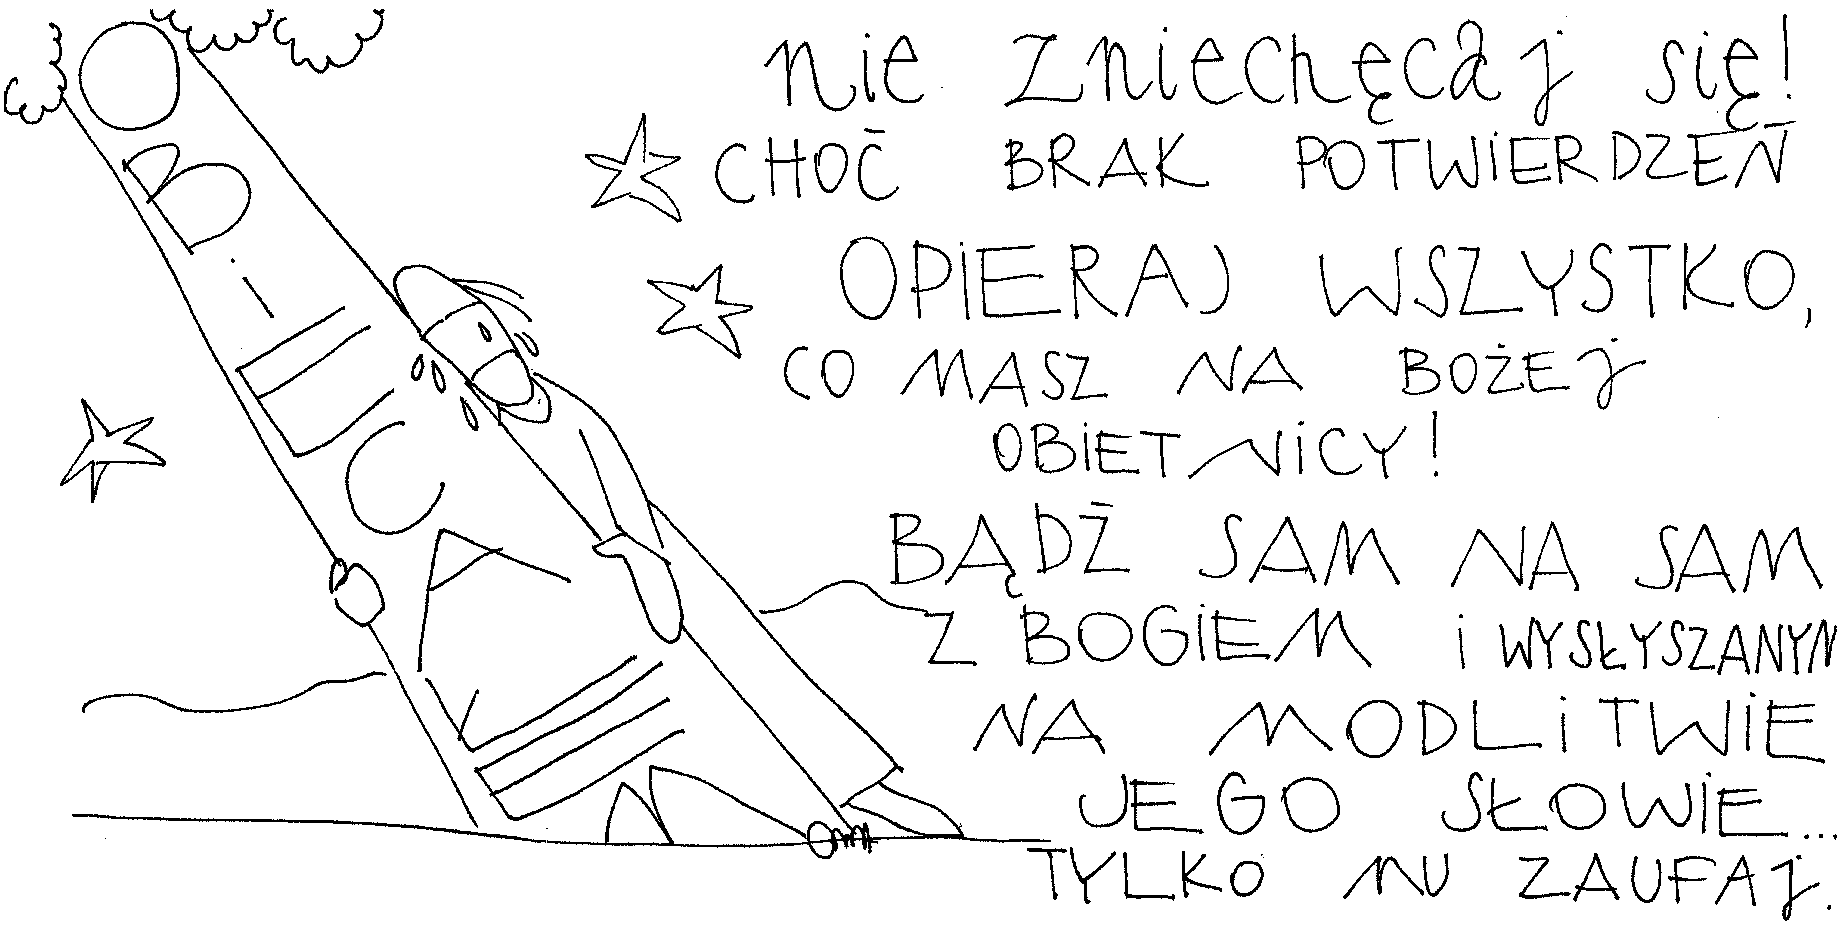 OBIECAŁEM
nie zniechęcaj się!
CHOĆ BRAK POTWIERDZEŃ
OPIERAJ WSZYSTKO,
CO MASZ NA BOŻEJ
OBIETNICY!
BĄDŹ SAM NA SAM
Z BOGIEM i WYSŁYSZANYM
NA MODLITWIE
JEGO SŁOWIE...
TYLKO MU ZAUFAJ.